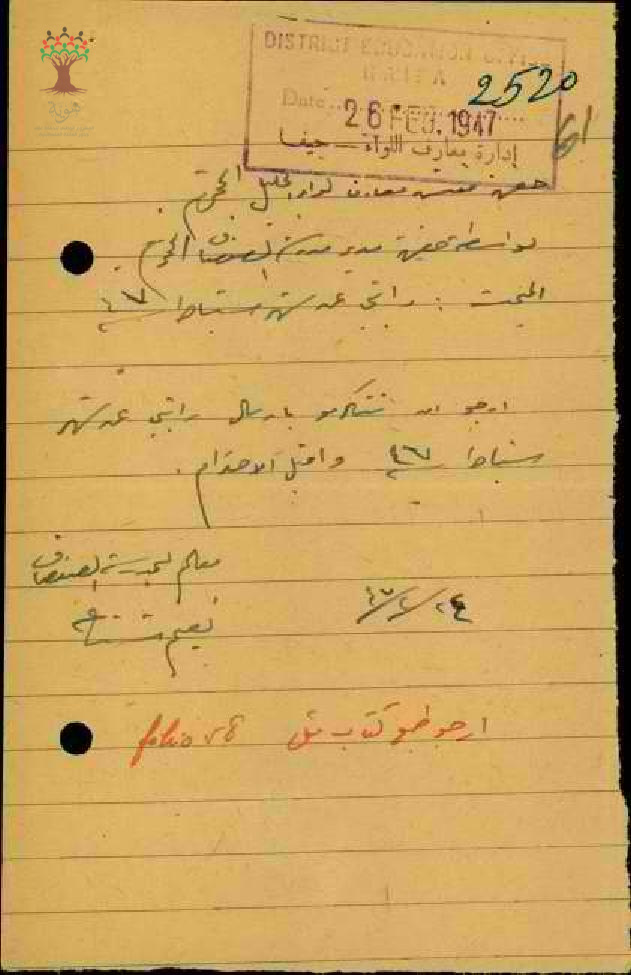 هوية
DISTRICT EDUCATION OFFICE
HAIFA
2520
Date 26 FEB. 1947
إدارة معارف اللواء — حيفا
61
حضرة مفتش معارف لواء الجليل المحترم.
بواسطة حضرة مدير مدرسة الصفصاف المحترم.
المبحث : راتبي عن شهر شباط ٤٧
ارجو ان تتكرموا بارسال راتبي عن شهر
شباط ٤٧ واقبلوا الاحترام.
معلم بمدرسة الصفصاف
٢٤/٢/٤٧
نعيم
ارجو طبع كتاب مثل folio 58